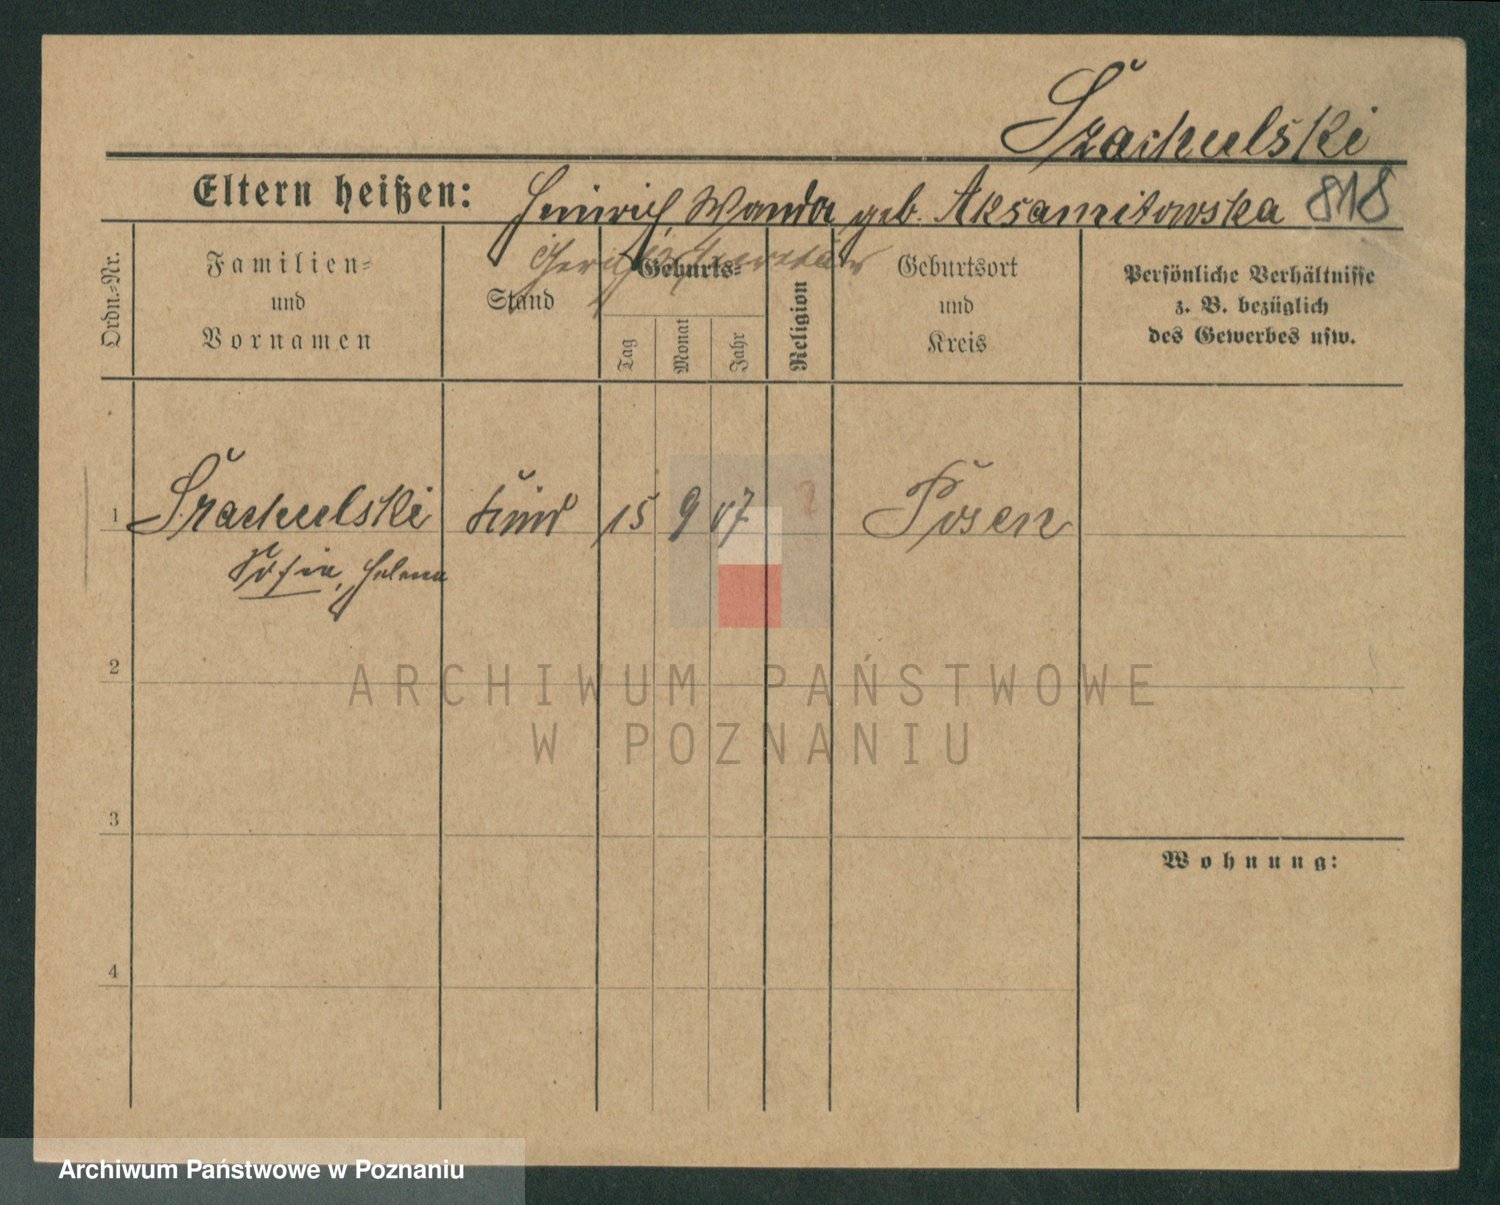 Szachulski
Eltern heißen: Heinrich Wanda geb. Aksamitowska 818
Gerichtssekretär
Ordn.-Nr.
Familien-
und
Vornamen
Stand
Geburts-
Tag
Monat
Jahr
Religion
Geburtsort
und
Kreis
Persönliche Verhältnisse
z. B. bezüglich
des Gewerbes usw.
1 Szachulski Kind 15 9 07 Posen
Sofie, Helena
2
ARCHIWUM PAŃSTWOWE
W POZNANIU
3
Wohnung:
4
Archiwum Państwowe w Poznaniu